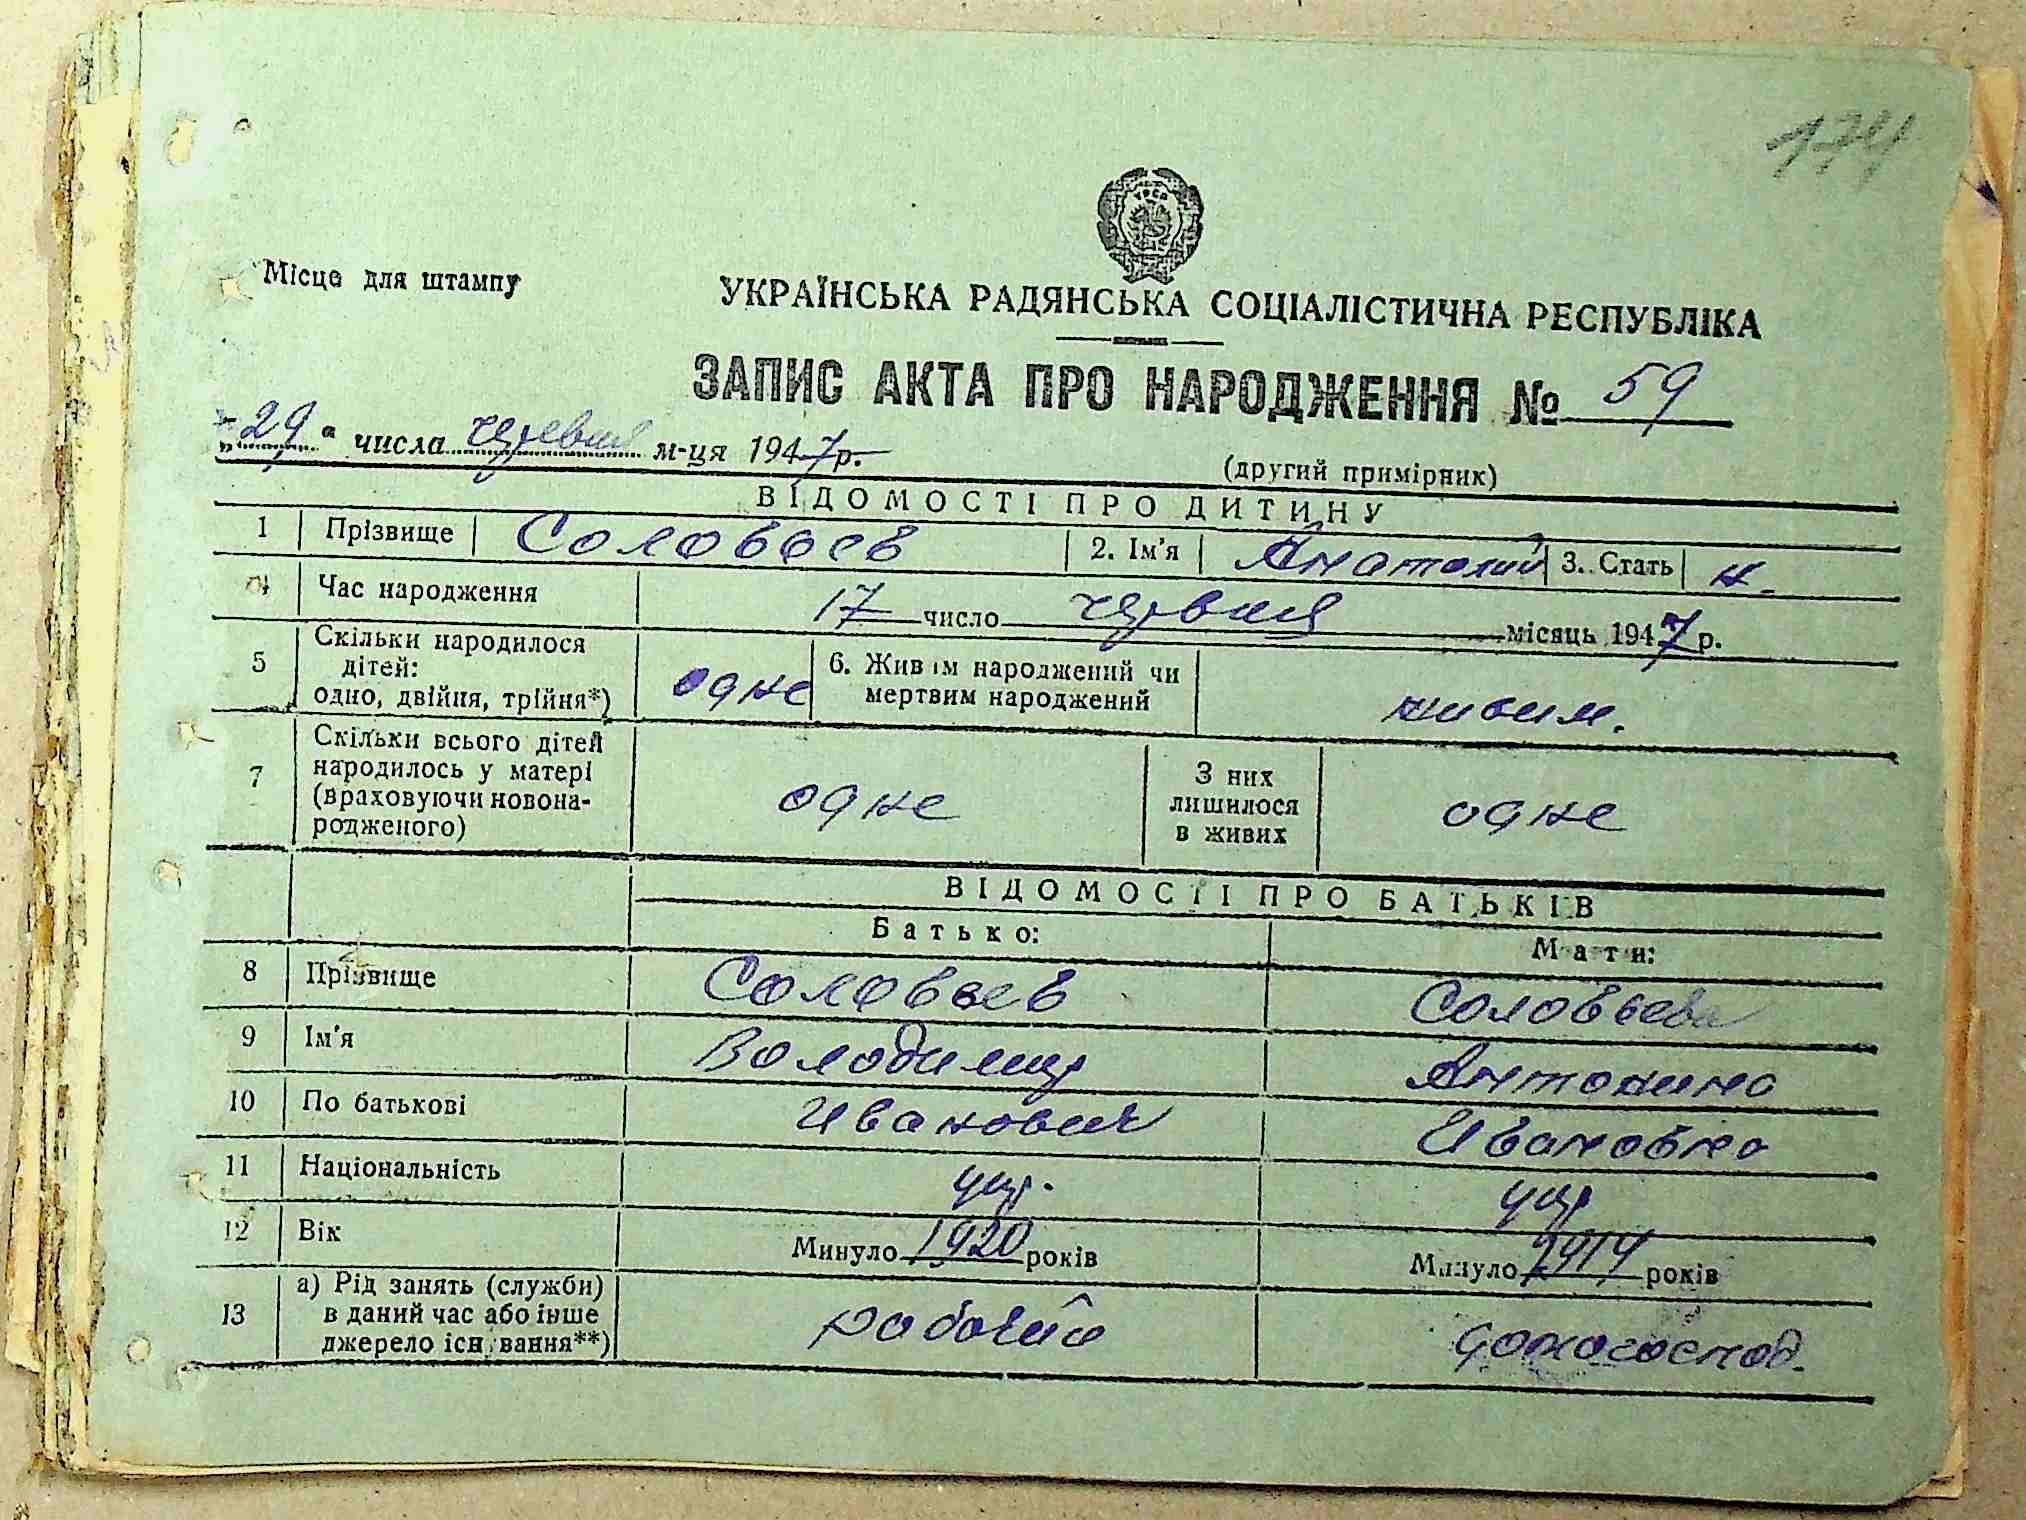 174
УРСР
Місце для штампу
УКРАЇНСЬКА РАДЯНСЬКА СОЦІАЛІСТИЧНА РЕСПУБЛІКА
ЗАПИС АКТА ПРО НАРОДЖЕННЯ № 59
„29“ числа червня м-ця 1947 р.
(другий примірник)
ВІДОМОСТІ ПРО ДИТИНУ
1 Прізвище Соловьев 2. Ім'я Анатолий 3. Стать
4 Час народження 17 число червня місяць 1947 р.
5 Скільки народилося дітей: одно, двійня, трійня*) одне 6. Живим народжений чи мертвим народжений живим.
7 Скільки всього дітей народилось у матері (враховуючи новона-родженого) одне З них лишилося в живих одне
ВІДОМОСТІ ПРО БАТЬКІВ
Батько: Мати:
8 Прізвище Соловьев Соловьева
9 Ім'я Володимир Антонина
10 По батькові Иванович Ивановна
11 Національність укр. укр
12 Вік Минуло 1920 років Минуло років
13 а) Рід занять (служби) в даний час або інше джерело існування**) рабочий домогоспод.